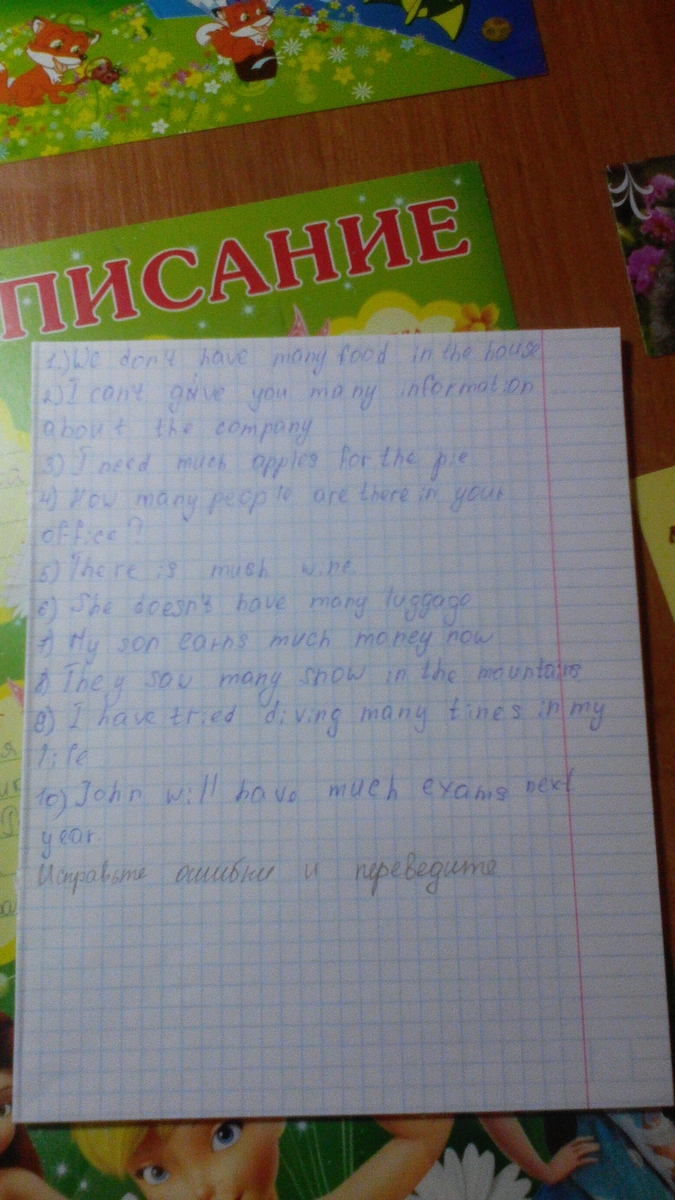 ПИСАНИЕ
1.) We don't have many food in the house
2) I can't give you many information
about the company
3) I need much apples for the pie
4) How many people are there in your
office?
5) There is much wine
6) She doesn't have many luggage
7) My son earns much money now
8) They sav many snow in the mountains
9) I have tried diving many times in my
life
10) John will have much exams next
year.
Исправьте ошибки и переведите